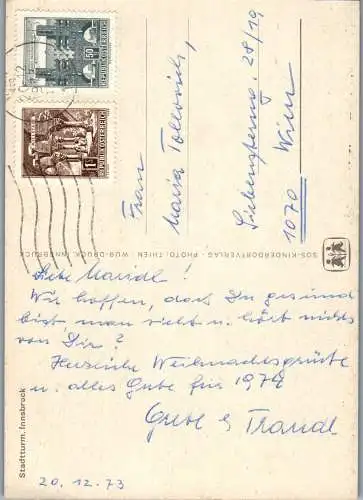 50
REPUBLIK ÖSTERREICH
REPUBLIK ÖSTERREICH
Frau
Maria
Siebensterng. 28/19
1070 Wien
SOS-KINDERDORFVERLAG - PHOTO: THIEN WUB-DRUCK, INNSBRUCK
Stadtturm, Innsbruck
Liebe Mariedl!
Wir hoffen, dass Du gesund
bist, man sieht u. hört nichts
von Dir?
Herzliche Weihnachtsgrüße
u. alles Gute für 1974
Grete & Traudl
20.12.73